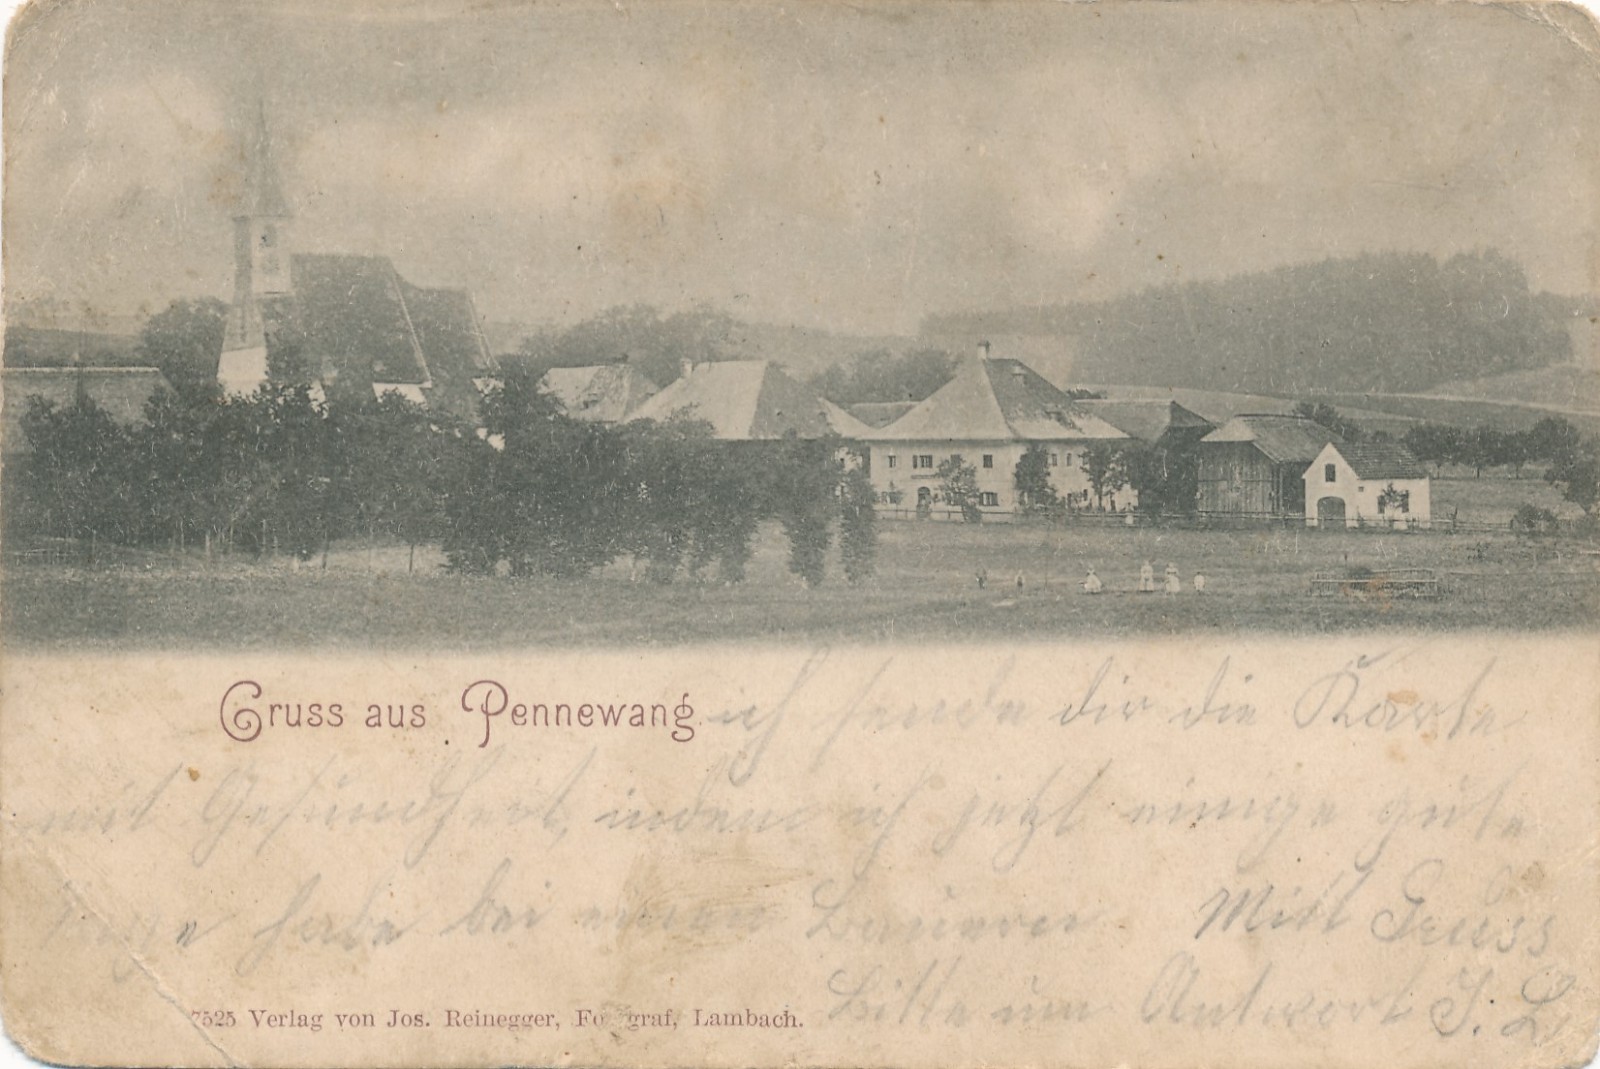 Gruss aus Pennewang.
ich sende dir die Karte
mit Gesundheit, indem ich jetzt einige gute
Tage habe bei einen Bauern Mitt Gruss
Bitte um Antwort J. L.
7525 Verlag von Jos. Reinegger, Fotograf, Lambach.